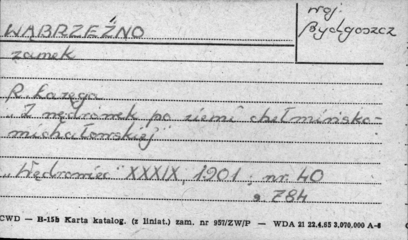 WĄBRZEŹNO
woj.
Bydgoszcz
zamek
R. Łazęga
„Z wędrówek po ziemi chełmińsko-
michałowskiej"
„Wędrowiec" XXXIX, 1901, nr 40
s. 784
CWD — B-15b Karta katalog. (z liniat.) zam. nr 957/ZW/P — WDA 21 22.4.65 3,070,000 A-6